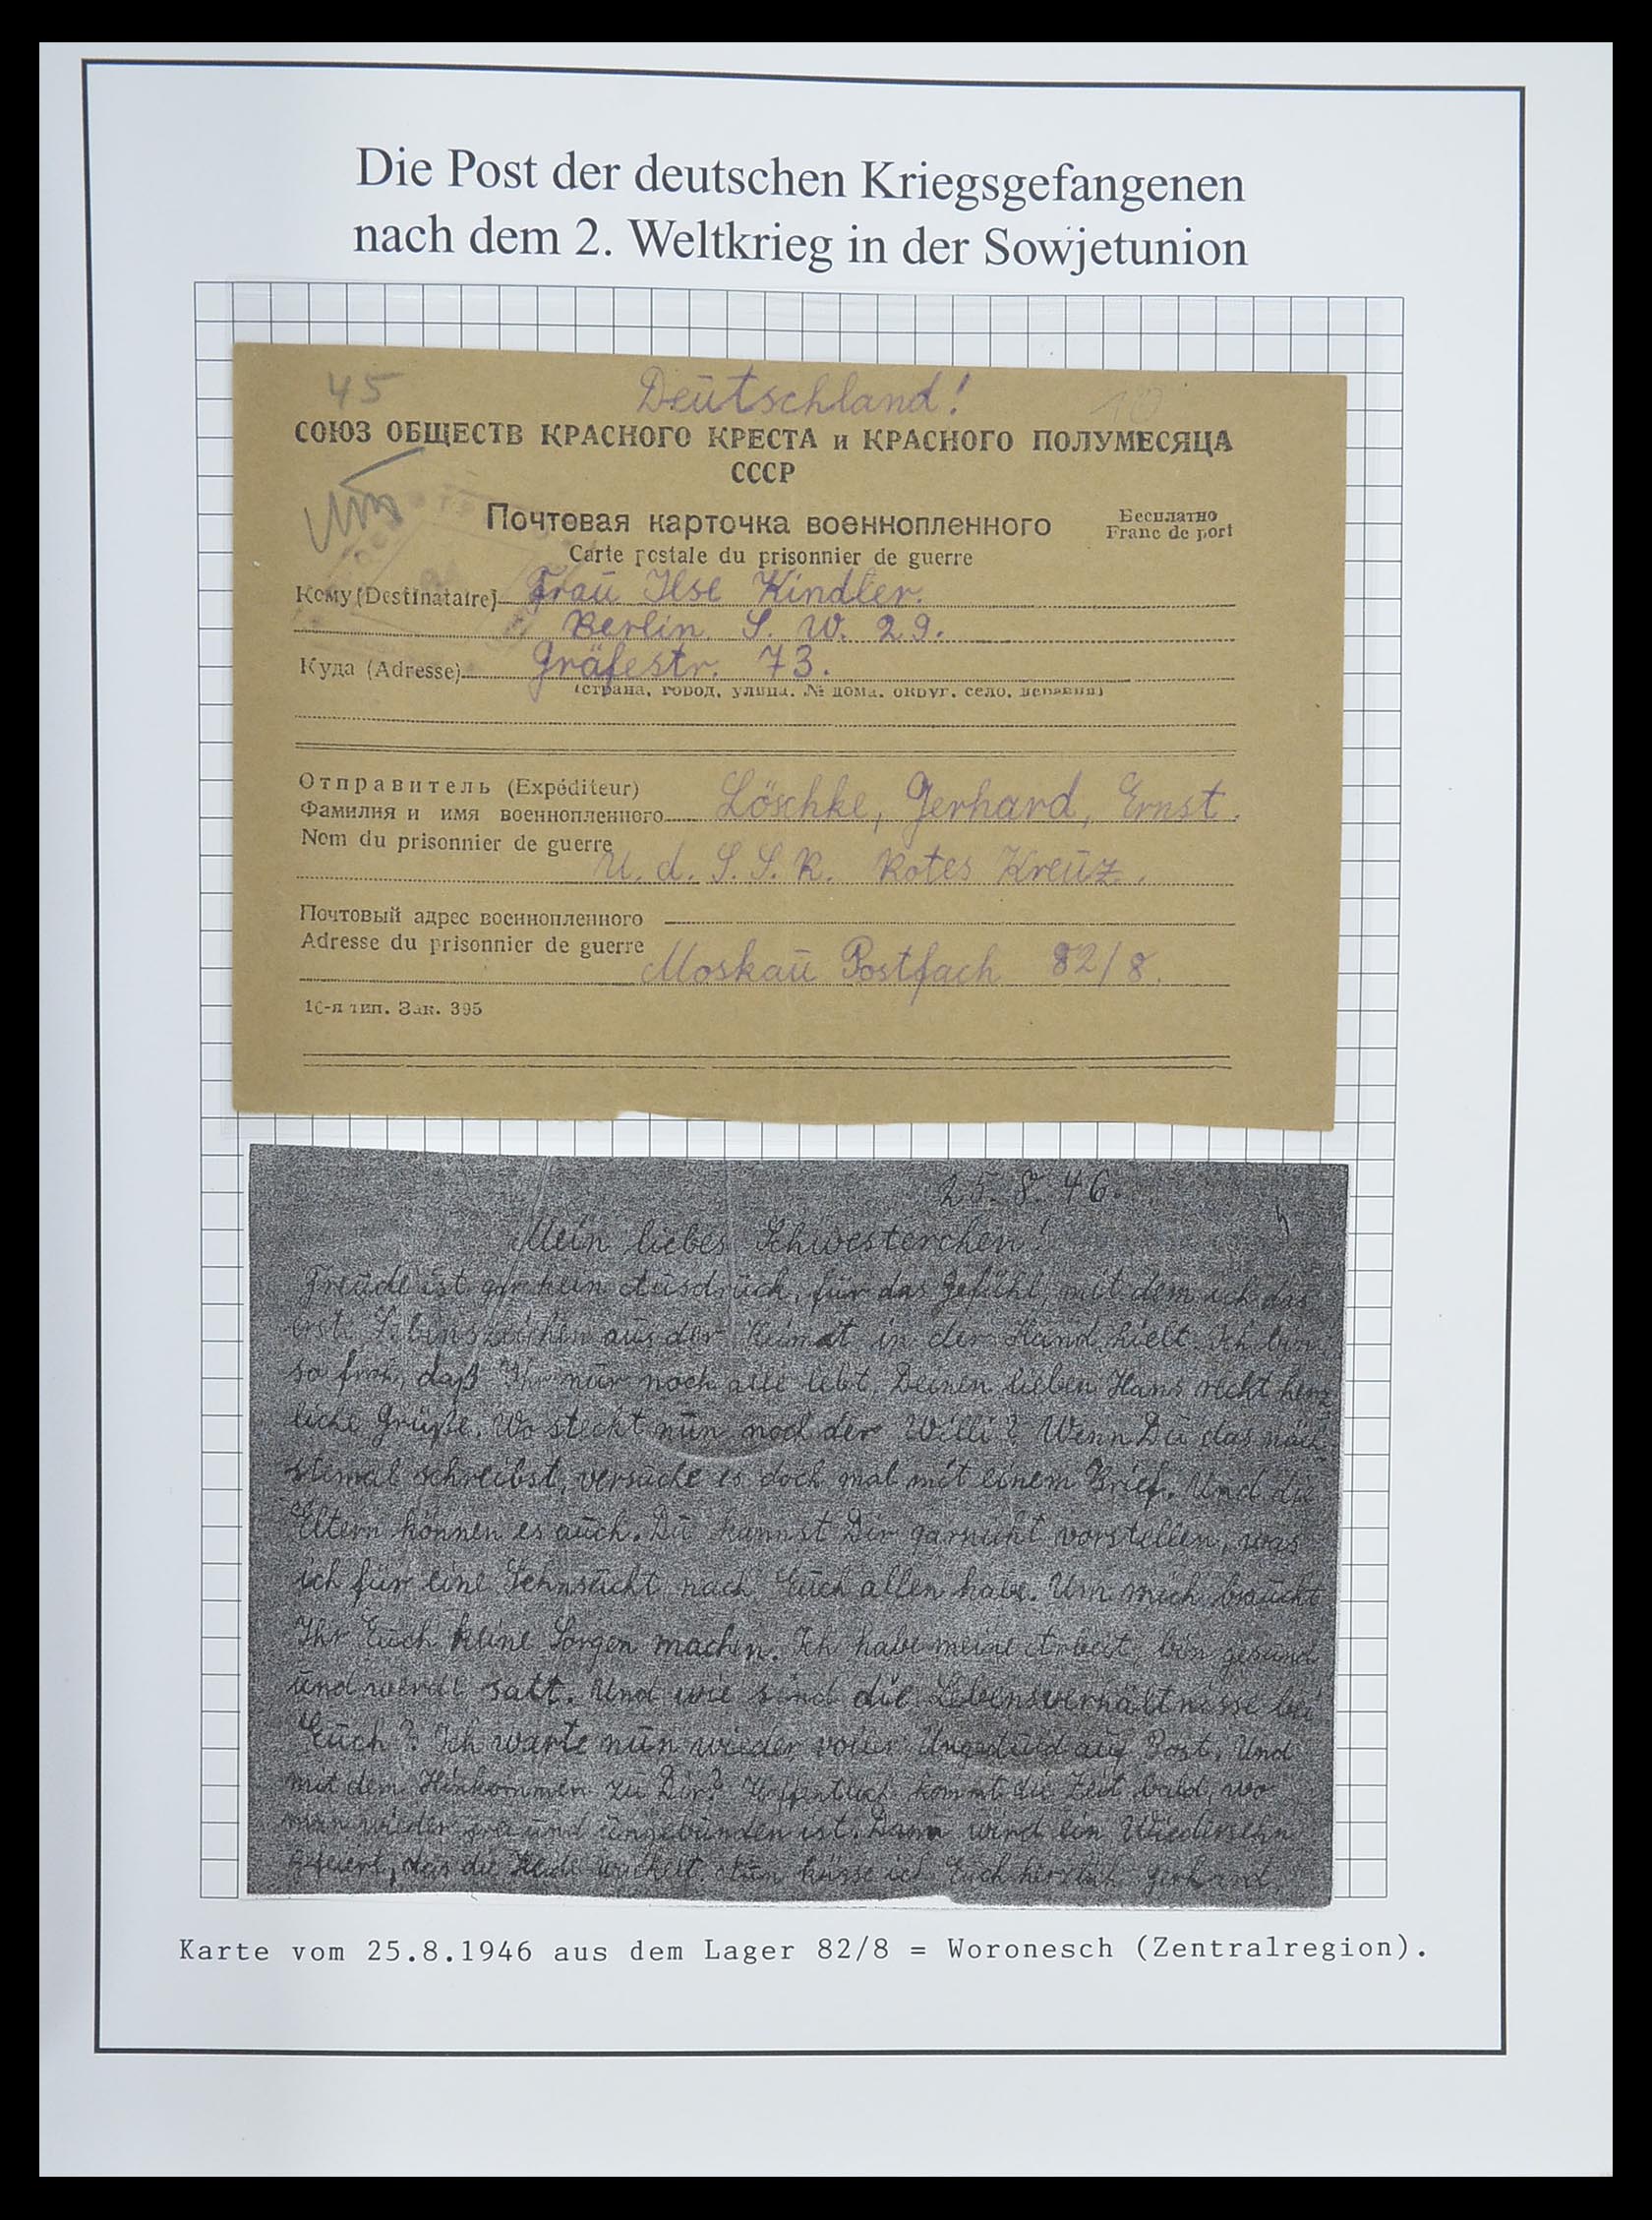 Die Post der deutschen Kriegsgefangenen
nach dem 2. Weltkrieg in der Sowjetunion
45
Deutschland!
СОЮЗ ОБЩЕСТВ КРАСНОГО КРЕСТА и КРАСНОГО ПОЛУМЕСЯЦА
СССР
Почтовая карточка военнопленного
Бесплатно
Franc de port
Carte postale du prisonnier de guerre
Кому (Destinataire) Frau Ilse Kindler.
Berlin S. W. 29.
Куда (Adresse) Gräfestr. 73.
(страна, город, улица, № дома, округ, село, деревня)
Отправитель (Expéditeur)
Фамилия и имя военнопленного Löschke, Gerhard, Ernst.
Nom du prisonnier de guerre
U. d. S. S. R. Rotes Kreuz.
Почтовый адрес военнопленного
Adresse du prisonnier de guerre Moskau Postfach 82/8.
16-я тип. Зак. 395
25. 8. 46.
Mein liebes Schwesterchen!
Freude ist gar kein Ausdruck, für das Gefühl, mit dem ich das
erste Lebenszeichen aus der Heimat in der Hand hielt. Ich bin
so froh, daß Ihr nur noch alle lebt. Deinen lieben Hans recht herz-
liche Grüße. Wo steckt nun noch der Willi? Wenn Du das näch-
stemal schreibst, versuche es doch mal mit einem Brief. Und die
Eltern können es auch. Du kannst Dir garnicht vorstellen, was
ich für eine Sehnsucht nach Euch allen habe. Um mich braucht
Ihr Euch keine Sorgen machen. Ich habe meine Arbeit, bin gesund
und werde satt. Und wie sind die Lebensverhältnisse bei
Euch? Ich warte nun wieder voller Ungeduld auf Post. Und
mit dem Hinkommen zu Dir? Hoffentlich kommt die Zeit bald, wo
man wieder frei und ungebunden ist. Dann wird ein Wiedersehn
gefeiert, das die Heide wackelt. Nun küsse ich Euch herzlich Gerhard.
Karte vom 25.8.1946 aus dem Lager 82/8 = Woronesch (Zentralregion).